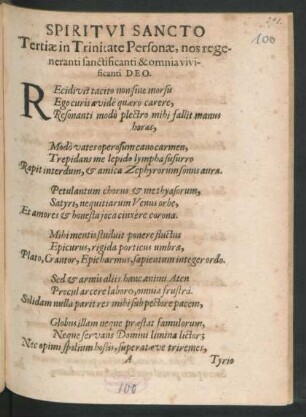 100
SPIRITVI SANCTO
Tertiæ in Trinitate Personæ, nos rege-
neranti sanctificanti & omnia vivi-
ficanti DEO.
REcidivit tacito non sine morsu
Ego curis avidè quæro carere,
Resonanti modò plectro mihi fallit manus
horas,
Modò vates operosum cano carmen,
Trepidans me lepido lympha susurro
Rapit interdum, & amica Zephyrorum sonus aura.
Petulantum chorus & methyasorum,
Satyri, nequitiarum Venus orbe,
Et amores & honesta joca cinxere corona.
Mihi mentis studuit ponere fluctus
Epicurus, rigida porticus umbra,
Plato, Crantor, Epicharmus, sapientum integer ordo.
Sed & armis aliis hanc animi Aten
Procul arcere laboro, omnia frustra.
Solidam nulla parit res mihi sub pectore pacem,
Globus illam neque præstat famulorum,
Neque servans Domini limina lictor;
Nec opimi spolium hostis, superatæve triremes,
A
Tyrio
100